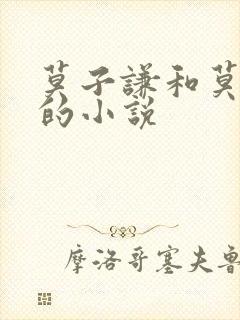 莫子謙和莫
的小說
摩洛哥塞夫魯